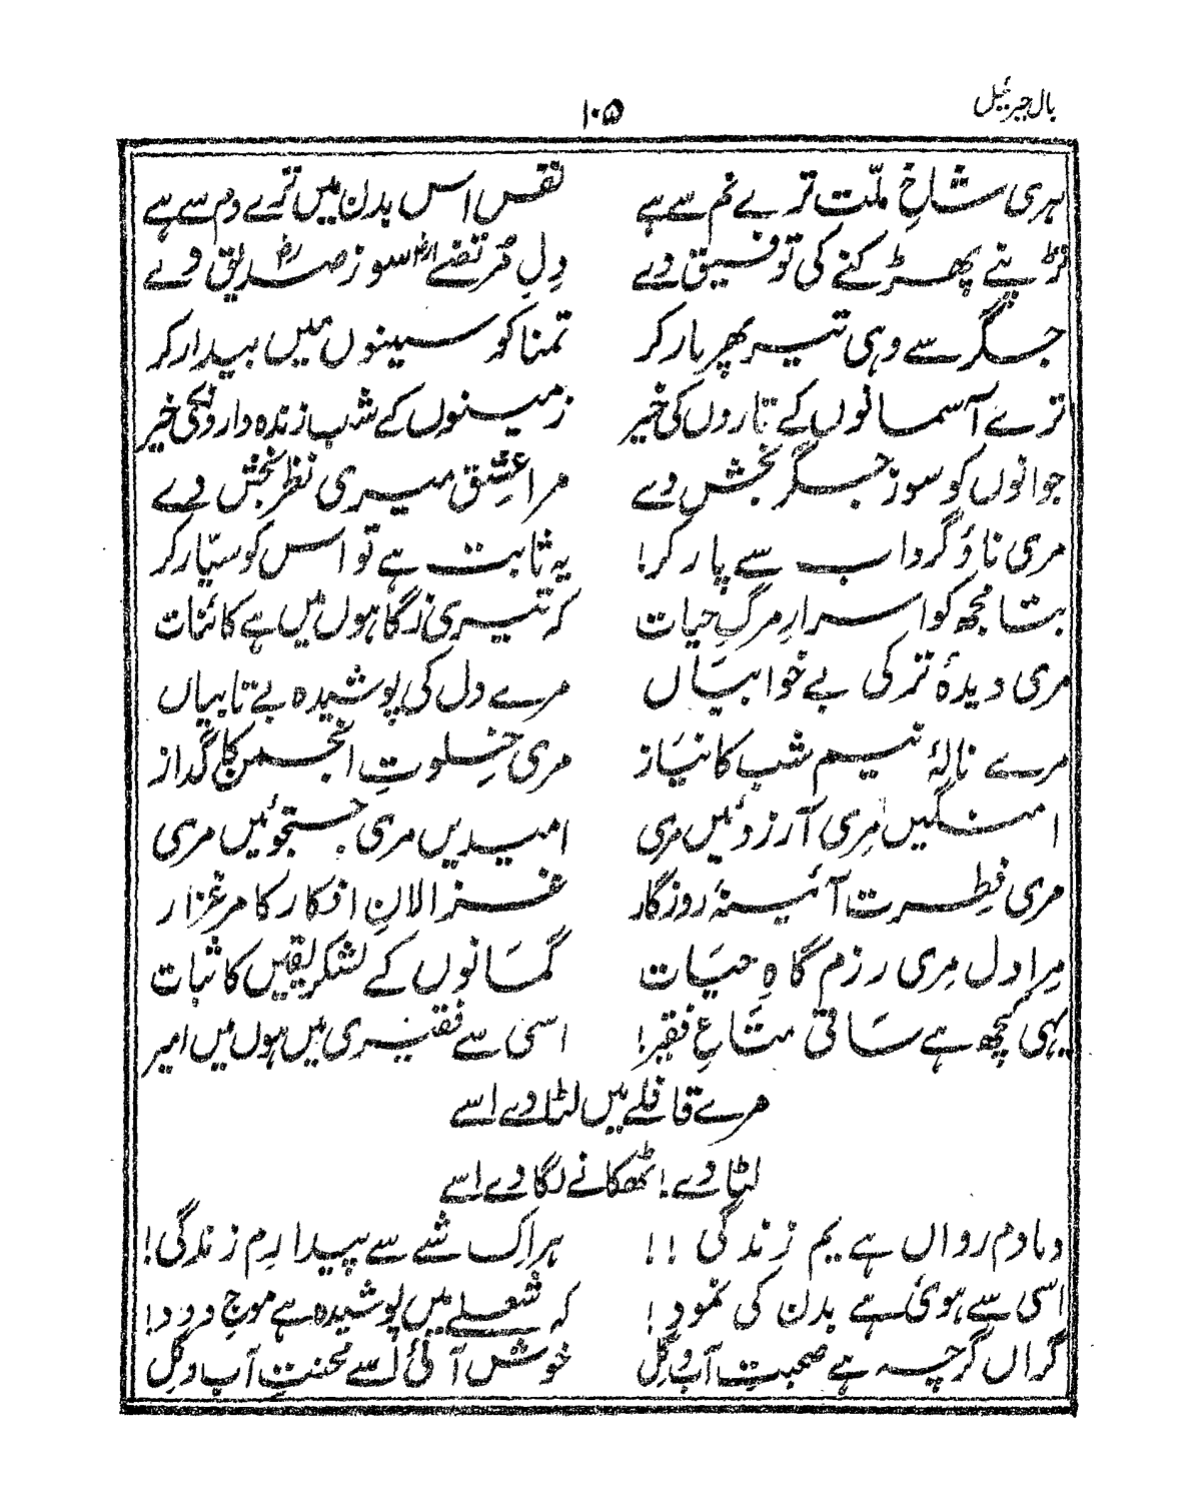 بال جبرئیل
۱۰۵
ہری شاخِ ملّت ترے نم سے ہے    نفس اس بدن میں ترے دم سے ہے
تڑپنے پھڑکنے کی توفیق دے    دِلِ مُرتضےٰؓ سوزِ صدیقؓ دے
جگر سے وہی تیر پھر پار کر    تمنا کو سینوں میں بیدار کر
ترے آسمانوں کے تاروں کی خیر    زمینوں کے شب زندہ داروں کی خیر
جوانوں کو سوزِ جگر بخش دے    مرا عشق میری نظر بخش دے
مری ناؤ گرداب سے پار کر!    یہ ثابت ہے تو اس کو سیّار کر
بتا مجھ کو اسرارِ مرگِ حیات    کہ تیری نگاہوں میں ہے کائنات
مری دیدۂ تر کی بے خوابیاں    مرے دل کی پوشیدہ بے تابیاں
مرے نالۂ نیم شب کا نیاز    مری خلوتِ انجمن کا گداز
امنگیں مِری آرزوئیں مری    امیدیں مری جستجوئیں مری
مری فِطرت آئینۂ روزگار    غزالانِ افکار کا مرغزار
مِرا دل مِری رزم گاہِ حیات    گمانوں کے لشکر یقیں کا ثبات
یہی کچھ ہے ساقی متاعِ فقیر!    اسی سے فقیری میں ہوں میں امیر
مرے قافلے میں لٹا دے اسے
لٹا دے! ٹھکانے لگا دے اسے
دمادم رواں ہے یم زندگی !!    ہر اِک شے سے پیدا رمِ زندگی!
اسی سے ہوئی ہے بدن کی نمود!    کہ شعلے میں پوشیدہ ہے موجِ دود!
گراں گرچہ ہے صحبتِ آب و گِل    خوش آئی اُسے محنتِ آب و گِل